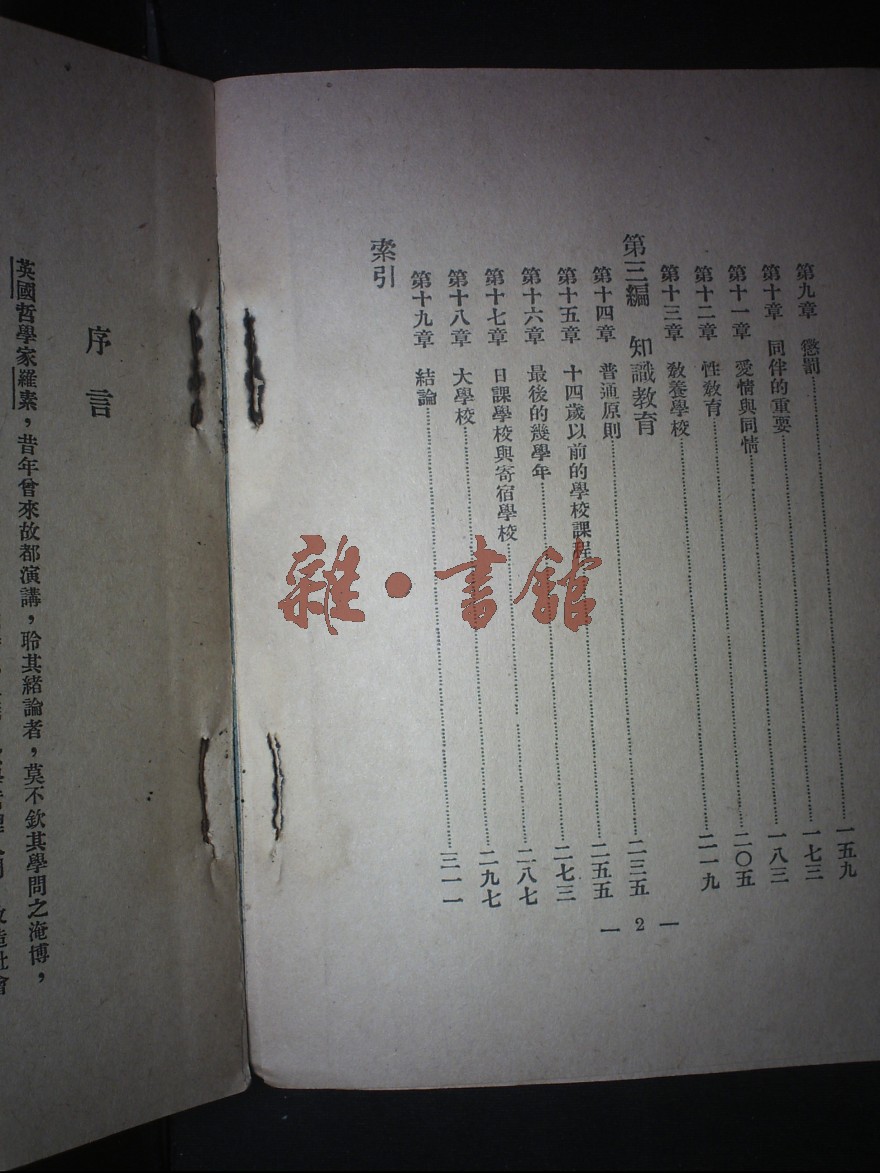 第九章 懲罰……一五九
第十章 同伴的重要……一七三
第十一章 愛情與同情……一八三
第十二章 性敎育……二〇五
第十三章 敎養學校……二一九
第三編 知識敎育
第十四章 普通原則……二三五
第十五章 十四歲以前的學校課程……二五五
第十六章 最後的幾學年……二七三
第十七章 日課學校與寄宿學校……二八七
第十八章 大學校……二九七
第十九章 結論……三一一
索引
— 2 —
雜·書館
序言
英國哲學家羅素，昔年曾來故都演講，聆其緒論者，莫不欽其學問之淹博，